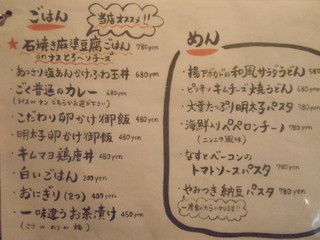 ごはん
当店オススメ!!
★石焼き麻婆豆腐ごはん 780yen
onナスとろ〜りチーズ
・あっさり塩あんかけふわ玉丼 680yen
・ごく普通のカレー 680yen
・こだわり卵かけ御飯 480yen
・明太子卵かけ御飯 680yen
・キムマヨ鶏唐丼 680yen
・白いごはん 100yen
・おにぎり(2つ) 400yen
・一味違うお茶漬け 450yen
めん
・揚アボカドの和風サラダうどん 580yen
・ピリ辛キムチーズ焼うどん 580yen
・大葉たっぷり明太子パスタ 780yen
・海鮮入りペペロンチーノ 780yen
(ニンニク風味)
・なすとベーコンの
トマトソースパスタ 780yen
・やみつき納豆パスタ 780yen